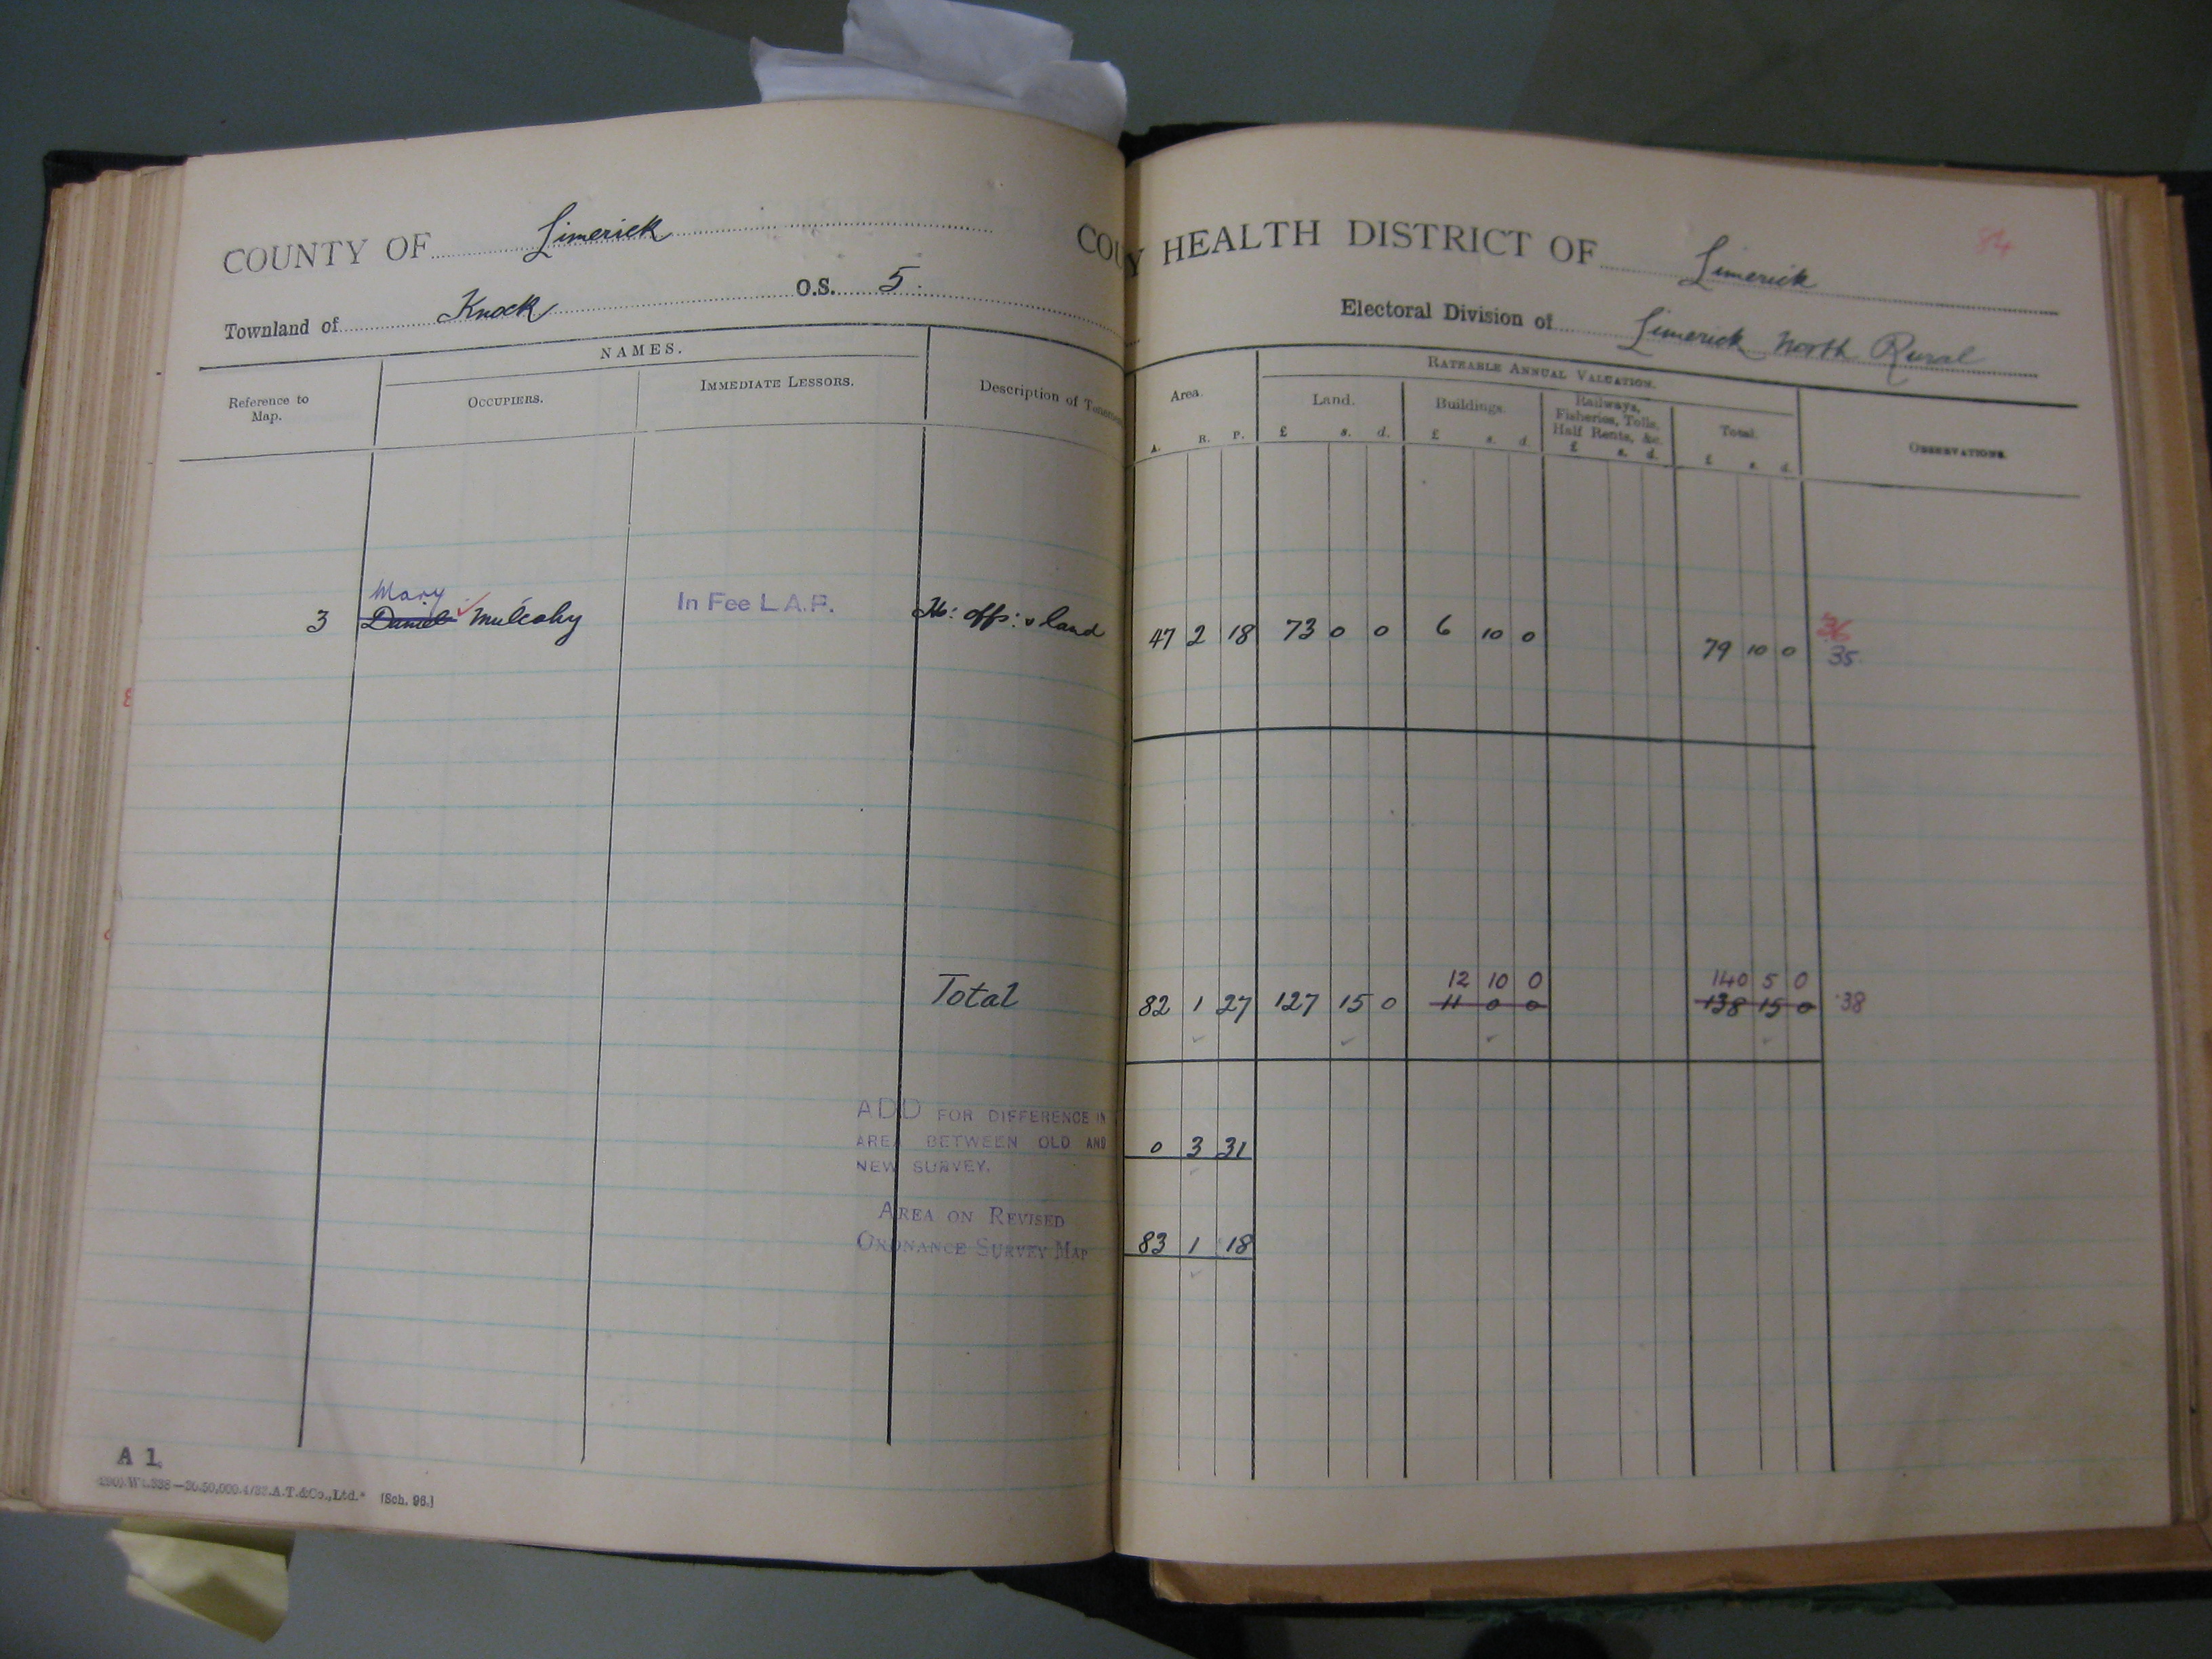 COUNTY OF Limerick
COU Y HEALTH DISTRICT OF Limerick
84
Townland of Knock O.S. 5.
Electoral Division of Limerick North Rural
Reference to Map.
NAMES.
OCCUPIERS.
IMMEDIATE LESSORS.
Description of Tenemen
Area.
A. R. P.
RATEABLE ANNUAL VALUATION.
Land.
£ s. d.
Buildings.
£ s. d.
Railways, Fisheries, Tolls, Half Rents, &c.
£ s. d.
Total.
£ s. d.
OBSERVATIONS.
Mary
3 Daniel Mulcahy In Fee L.A.P. Ho: offs: & land 47 2 18 73 0 0 6 10 0 79 10 0 36
35
12 10 0 140 5 0
Total 82 1 27 127 15 0 11 0 0 138 15 0 38
ADD FOR DIFFERENCE IN
AREA BETWEEN OLD AND 0 3 31
NEW SURVEY.
AREA ON REVISED
ORDNANCE SURVEY MAP 83 1 18
A 1.
[Sch. 96.]